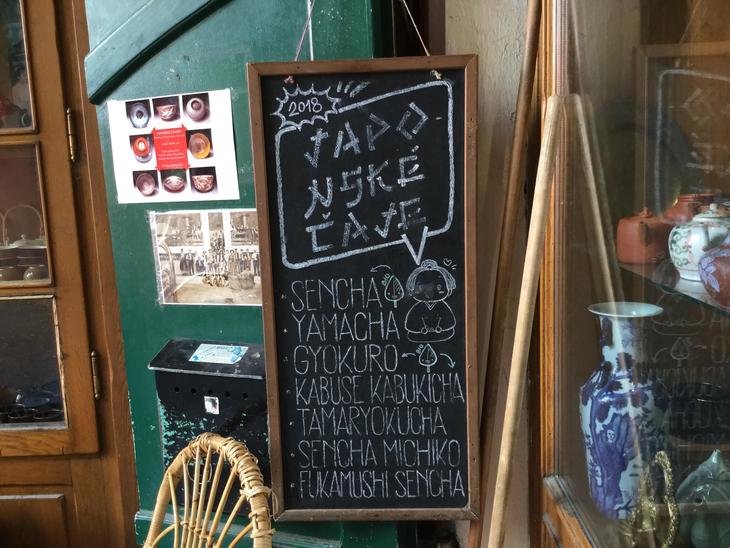 2018
JAPO
NSKÉ
ČAJE
SENCHA
YAMACHA
GYOKURO
KABUSE KABUKICHA
TAMARYOKUCHA
SENCHA MICHIKO
FUKAMUSHI SENCHA